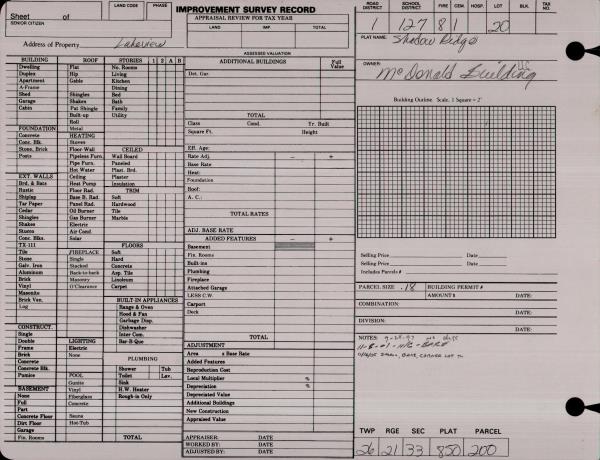 Sheet of
SENIOR CITIZEN
LAND CODE PHASE
IMPROVEMENT SURVEY RECORD
APPRAISAL REVIEW FOR TAX YEAR
LAND IMP. TOTAL
ROAD DISTRICT SCHOOL DISTRICT FIRE CEM. HOSP. LOT BLK. TAX NO.
1 127 8 1 20
PLAT NAME: Shadow Ridge
Address of Property Lakeview
ASSESSED VALUATION
OWNER: McDonald Building LLC
BUILDING ROOF STORIES 1 2 A B
Dwelling Flat No. Rooms
Duplex Hip Living
Apartment Gable Kitchen
A-Frame Dining
Shed Shingles Bed
Garage Shakes Bath
Cabin Pat Shingle Family
Built-up Utility
Roll
FOUNDATION Metal
Concrete HEATING
Conc. Blk. Stoves
Stone, Brick Floor-Wall CEILED
Posts Pipeless Furn. Wall Board
Pipe Furn. Paneled
Hot Water Plast. Brd.
EXT. WALLS Ceiling Plaster
Brd. & Bats Heat Pump Insulation
Rustic Floor Rad. TRIM
Shiplap Base B. Rad. Soft
Tar Paper Panel Rad. Hardwood
Cedar Oil Burner Tile
Shingles Gas Burner Marble
Shakes Electric
Stores Air Cond.
Conc. Blks. Solar
TX-111 FLOORS
Tile FIREPLACE Soft
Stone Single Hard
Galv. Iron Stacked Concrete
Aluminum Back-to-back Asp. Tile
Brick Masonry Linoleum
Vinyl O'Clearance Carpet
Masonite
Brick Ven. BUILT-IN APPLIANCES
Log Range & Oven
Hood & Fan
Garbage Disp.
CONSTRUCT. Dishwasher
Single Inter Com.
Double LIGHTING Bar-B-Que
Frame Electric
Brick None PLUMBING
Concrete Shower Tub
Concrete Blk. Toilet Lav.
Pumice POOL Sink
Gunite H.W. Heater
BASEMENT Vinyl Rough-in Only
None Fiberglass
Full Concrete
Part
Concrete Floor Sauna
Dirt Floor Hot-Tub
Garage
Fin. Rooms TOTAL
ADDITIONAL BUILDINGS Full Value
Det. Gar.
TOTAL
Class Cond. Yr. Built
Square Ft. Height
Eff. Age:
Rate Adj. − +
Base Rate
Heat:
Foundation
Roof:
A. C.:
TOTAL RATES
ADJ. BASE RATE
ADDED FEATURES − +
Basement
Fin. Rooms
Built-ins
Plumbing
Fireplace
Attached Garage
LESS C.W.
Carport
Deck
TOTAL
ADJUSTMENT
Area x Base Rate
Added Features
Reproduction Cost
Local Multiplier %
Depreciation %
Depreciated Value
Additional Buildings
New Construction
Appraised Value
APPRAISER: DATE
WORKED BY: DATE
ADJUSTED BY: DATE
Building Outline Scale, 1 Square = 2'
Selling Price Date
Selling Price Date
Includes Parcels #
PARCEL SIZE .18 BUILDING PERMIT #
AMOUNT $ DATE:
COMBINATION:
DATE:
DIVISION:
DATE:
NOTES:
TWP RGE SEC PLAT PARCEL
26 21 33 850 200